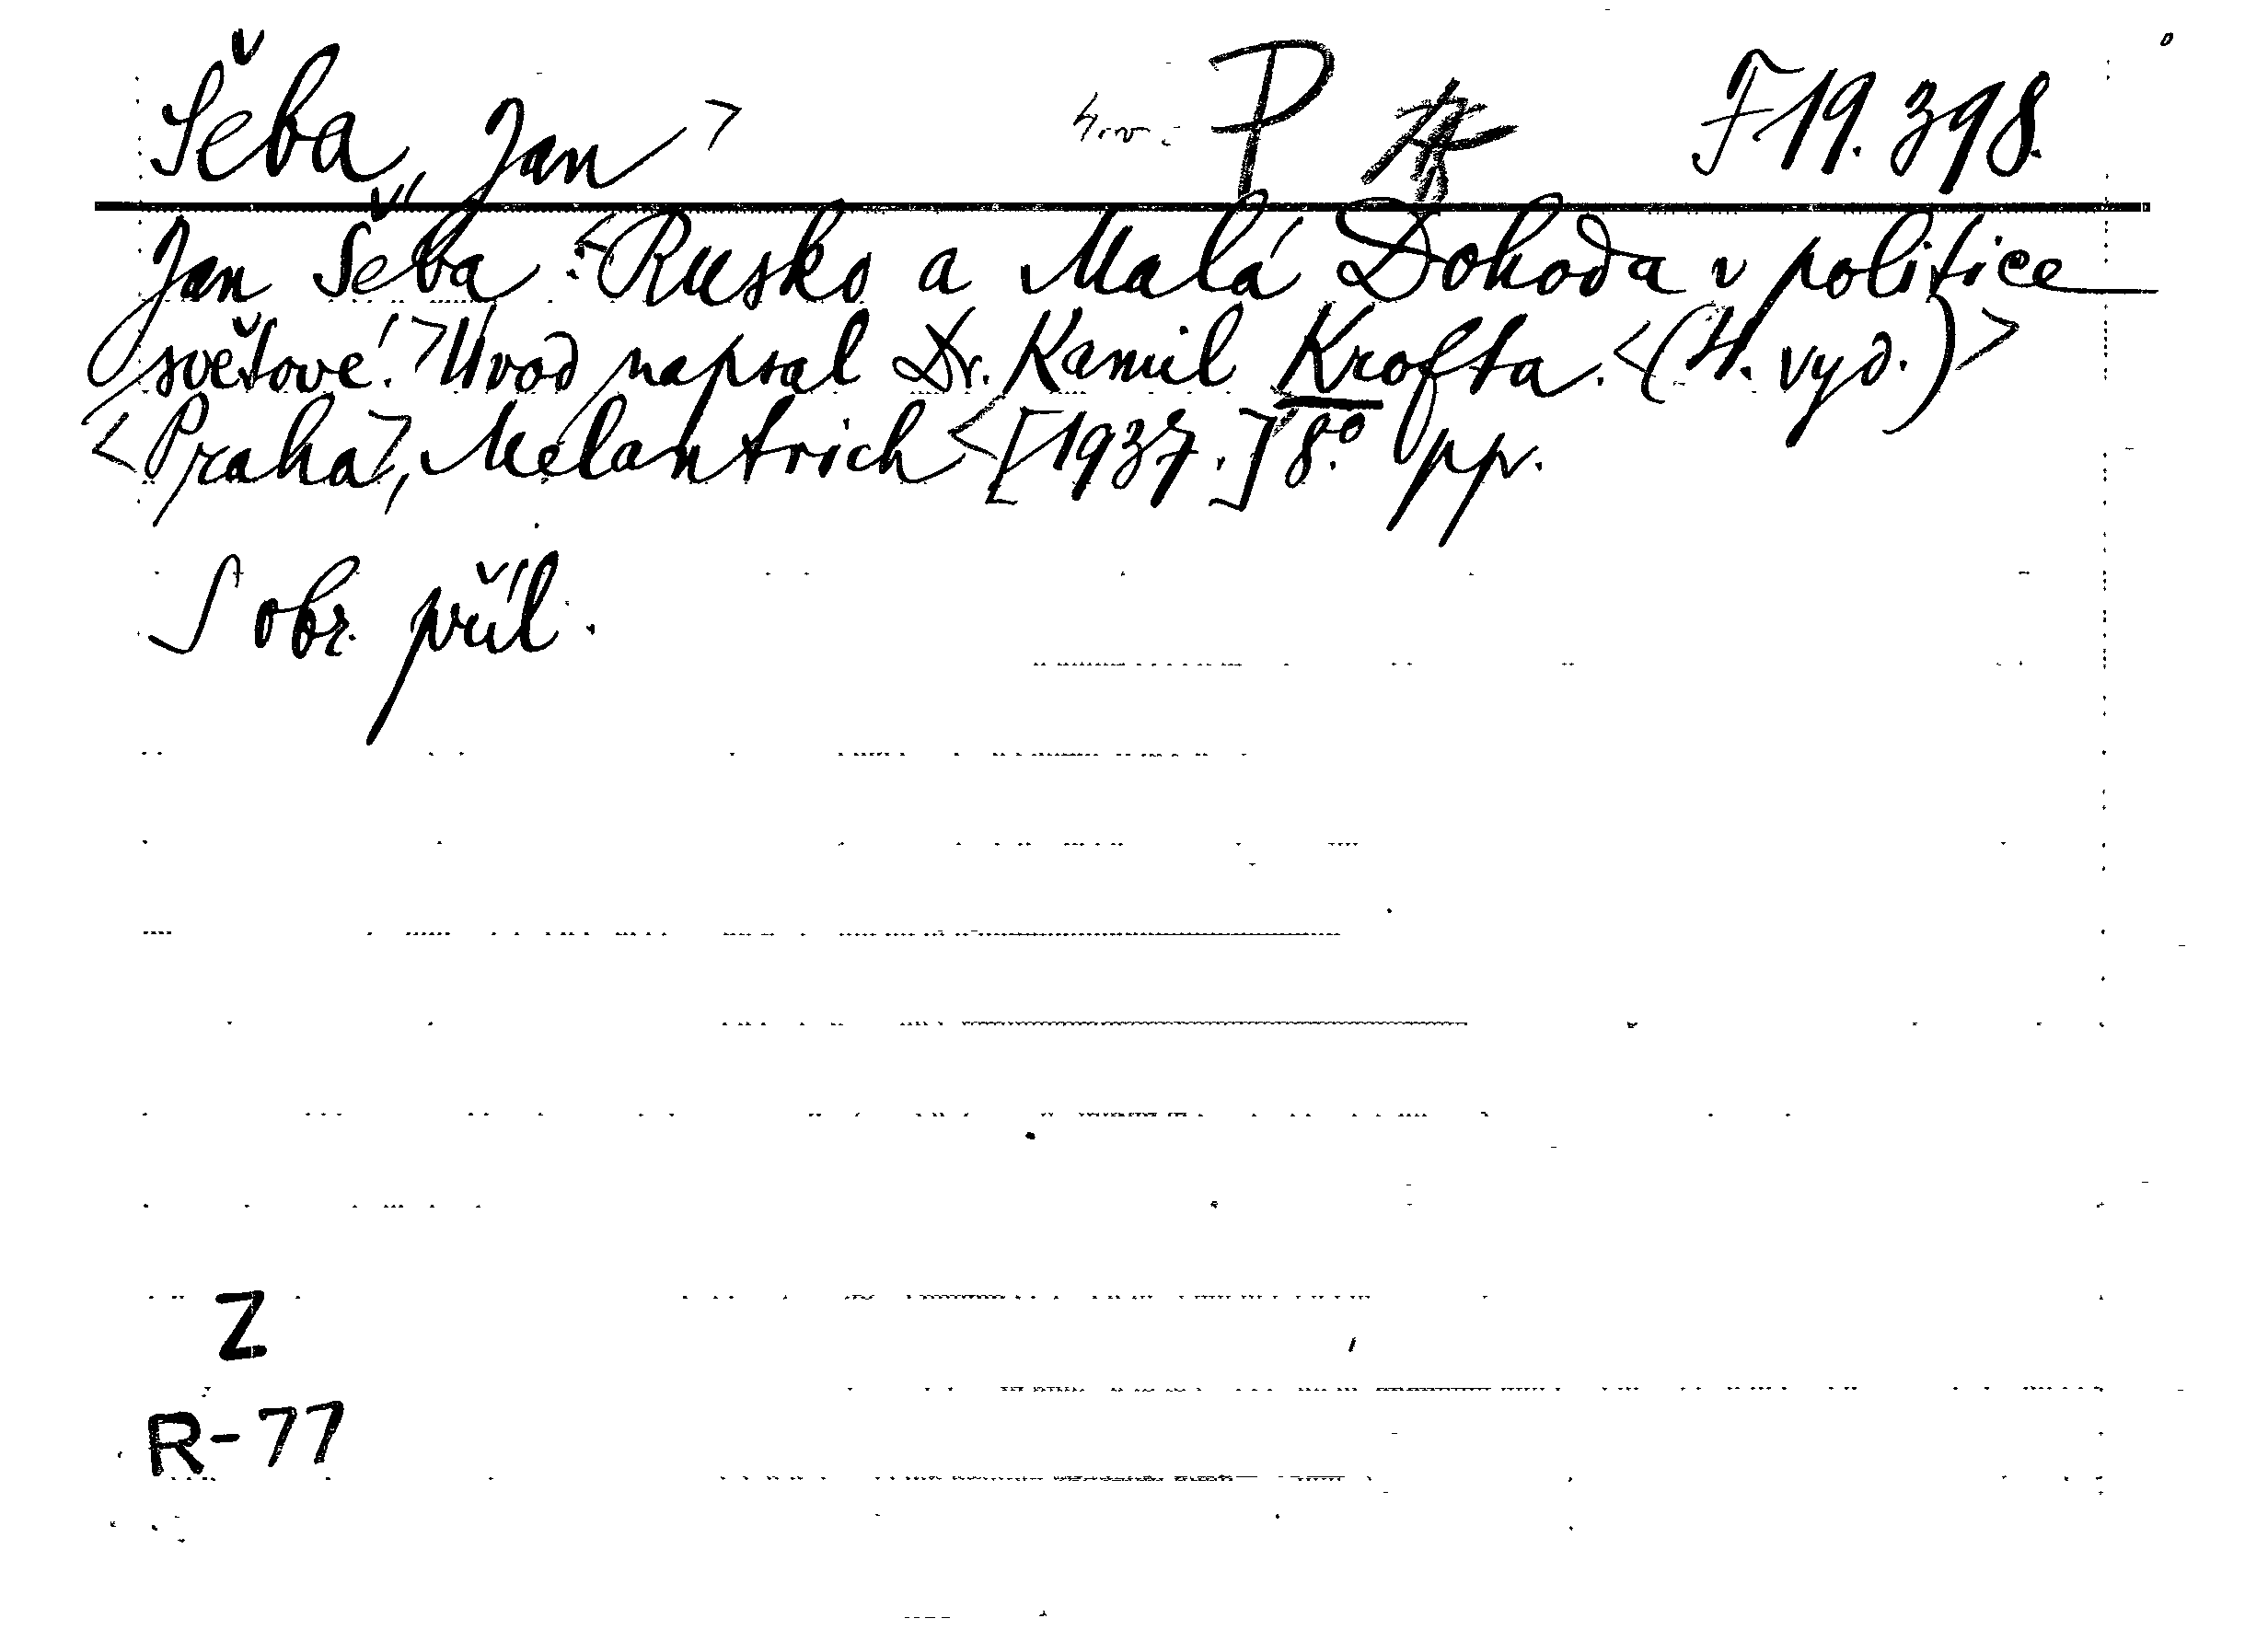 Šeba, Jan > P F 19.398.
Jan Šeba: <Rusko a Malá Dohoda v politice
světové.> Úvod napsal Dr. Kamil Krofta. <(4. vyd.)>
<Praha>, Melantrich <[1937.] 8.° pp.
S obr. příl.
Z
R-77